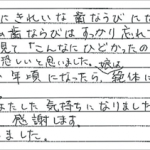 にきれいな歯ならびにな
の歯ならびはすっかり忘れて
見て「こんなにひどかったの
恐しいと思いました。娘は
年頃になったら、絶体に
たした気持ちになりました
感謝します。
ました。